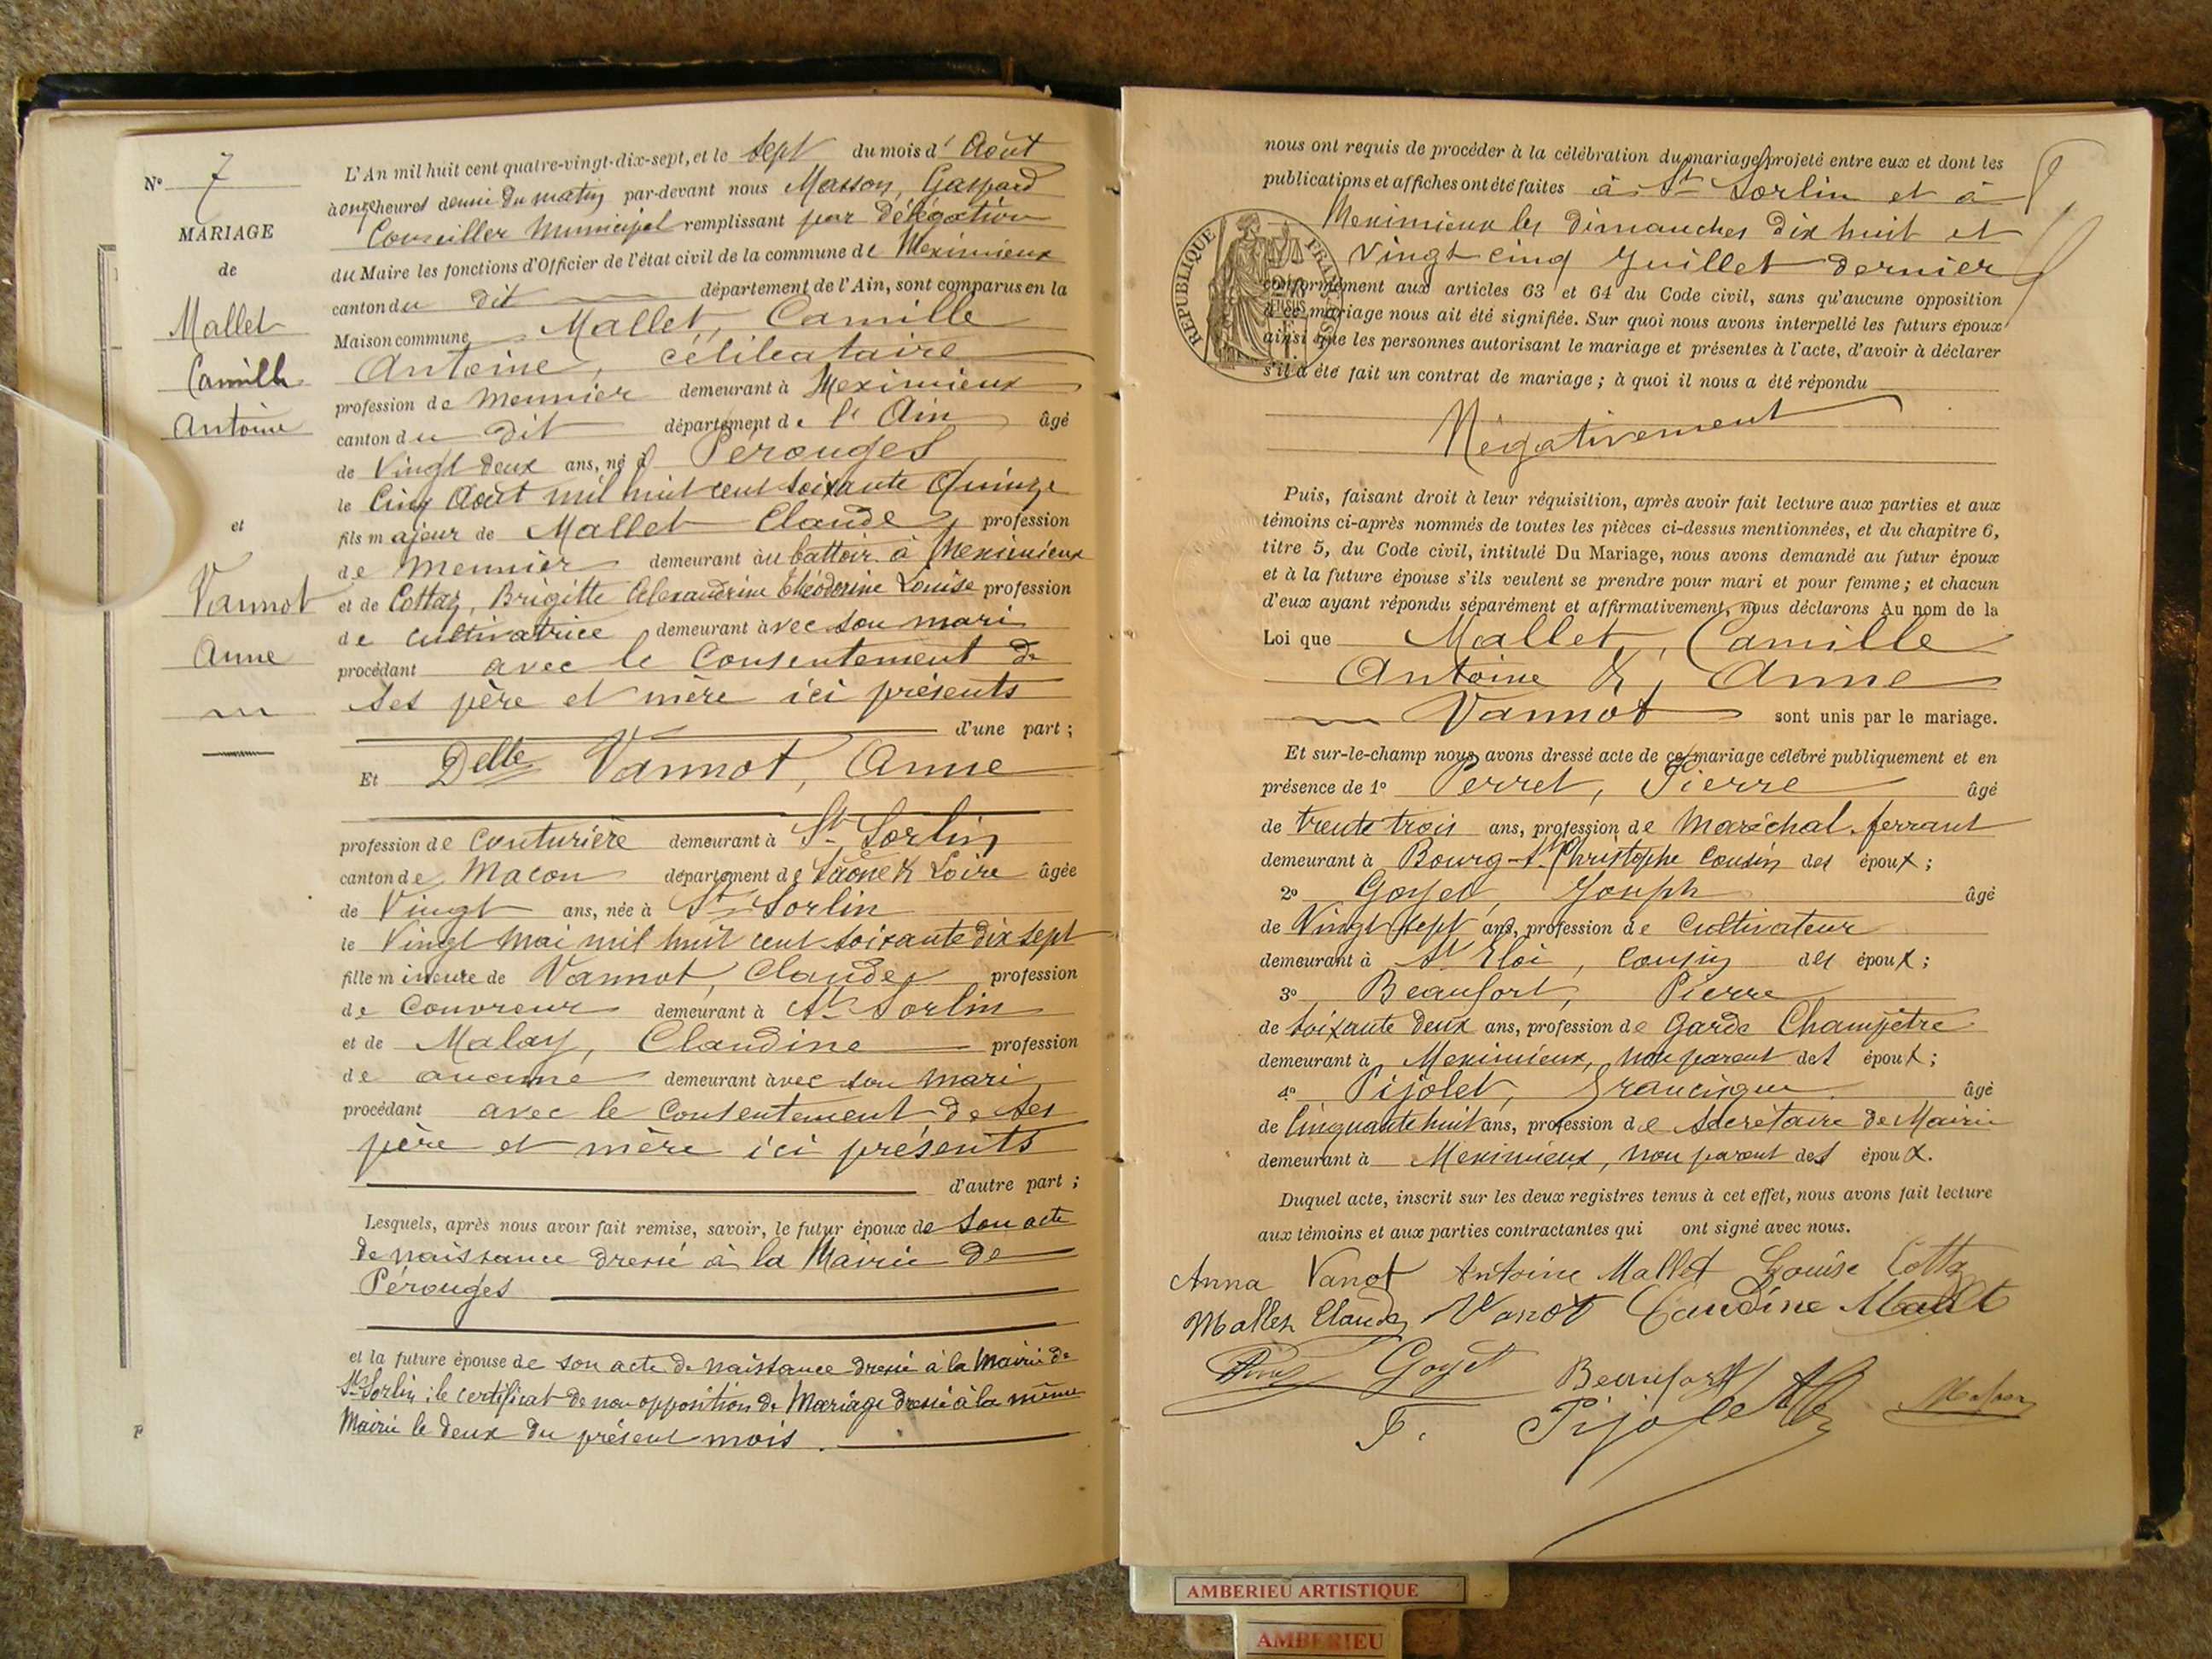 N° 7
MARIAGE
de
Mallet
Camille
Antoine
et
Vannot
Anne
L'An mil huit cent quatre-vingt-dix-sept, et le sept du mois d'Août
à onze heures demi du matin par-devant nous Masson, Gaspard
Conseiller Municipal remplissant par Délégation
du Maire les fonctions d'Officier de l'état civil de la commune de Meximieux
canton du dit département de l'Ain, sont comparus en la
Maison commune Mallet, Camille
Antoine, célibataire
profession de Meunier demeurant à Meximieux
canton du dit département de l'Ain âgé
de Vingt deux ans, né à Pérouges
le Cinq Août mil huit cent soixante Quinze
fils majeur de Mallet Claude, profession
de Meunier demeurant au battoir à Meximieux
et de Cottaz, Brigitte Alexandrine Théodorine Louise profession
de cultivatrice demeurant avec son mari
procédant avec le Consentement de
ses père et mère ici présents
d'une part ;
Et Delle Vannot, Anne
profession de couturière demeurant à St Sorlin
canton de Macon département de Saône & Loire âgée
de Vingt ans, née à St Sorlin
le Vingt Mai mil huit cent soixante dix sept
fille mineure de Vannot, Claude, profession
de Couvreur demeurant à St Sorlin
et de Malay, Claudine profession
de aucune demeurant avec son mari
procédant avec le Consentement de ses
père et mère ici présents
d'autre part ;
Lesquels, après nous avoir fait remise, savoir, le futur époux de son acte
de naissance dressé à la Mairie de
Pérouges
et la future épouse de son acte de naissance dressé à la Mairie de
St Sorlin ; le certificat de non opposition de Mariage dressé à la même
Mairie le deux du présent mois.
nous ont requis de procéder à la célébration du mariage projeté entre eux et dont les
publications et affiches ont été faites à St Sorlin et à
Meximieux les dimanches dix huit et
Vingt cinq Juillet dernier
conformément aux articles 63 et 64 du Code civil, sans qu'aucune opposition
à ce mariage nous ait été signifiée. Sur quoi nous avons interpellé les futurs époux
ainsi que les personnes autorisant le mariage et présentes à l'acte, d'avoir à déclarer
s'il a été fait un contrat de mariage ; à quoi il nous a été répondu
Négativement
REPUBLIQUE FRANÇAISE
Puis, faisant droit à leur réquisition, après avoir fait lecture aux parties et aux
témoins ci-après nommés de toutes les pièces ci-dessus mentionnées, et du chapitre 6,
titre 5, du Code civil, intitulé Du Mariage, nous avons demandé au futur époux
et à la future épouse s'ils veulent se prendre pour mari et pour femme ; et chacun
d'eux ayant répondu séparément et affirmativement, nous déclarons Au nom de la
Loi que Mallet, Camille
Antoine &, Anne
Vannot sont unis par le mariage.
Et sur-le-champ nous avons dressé acte de ce mariage célébré publiquement et en
présence de 1° Perret, Pierre âgé
de trente trois ans, profession de Maréchal-ferrant
demeurant à Bourg-St Christophe Cousin des époux ;
2° Goyet, Joseph âgé
de Vingt sept ans, profession de Cultivateur
demeurant à St Eloi, Cousin des époux ;
3° Beaufort, Pierre
de soixante deux ans, profession de Garde Champêtre
demeurant à Meximieux, non parent des époux ;
4° Pijolet, Francisque âgé
de Cinquante huit ans, profession de Secrétaire de Mairie
demeurant à Meximieux, non parent des époux.
Duquel acte, inscrit sur les deux registres tenus à cet effet, nous avons fait lecture
aux témoins et aux parties contractantes qui ont signé avec nous.
Anna Vanot Antoine Mallet Louise Cottaz
Mallet Claude Vanot Claudine
Goyet Beaufort
F. Pijolet Masson
AMBERIEU ARTISTIQUE
AMBERIEU